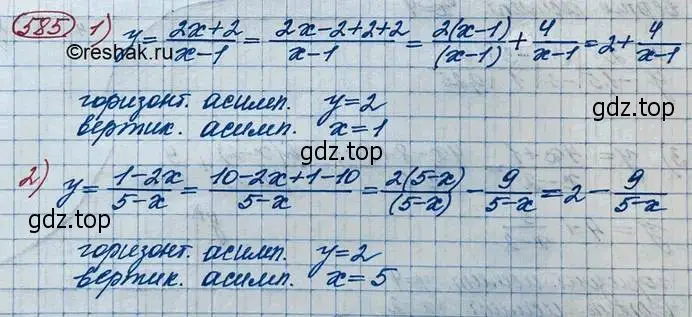 585 1) y = (2x+2)/(x-1) = (2x-2+2+2)/(x-1) = (2(x-1))/((x-1)) + 4/(x-1) = 2 + 4/(x-1)
©reshak.ru
горизонт. асимп. y=2
вертик. асимп. x=1
gdz.top
gdz.top
2) y = (1-2x)/(5-x) = (10-2x+1-10)/(5-x) = (2(5-x))/((5-x)) - 9/(5-x) = 2 - 9/(5-x)
gdz.top
gdz.top
горизонт. асимп. y=2
вертик. асимп. x=5